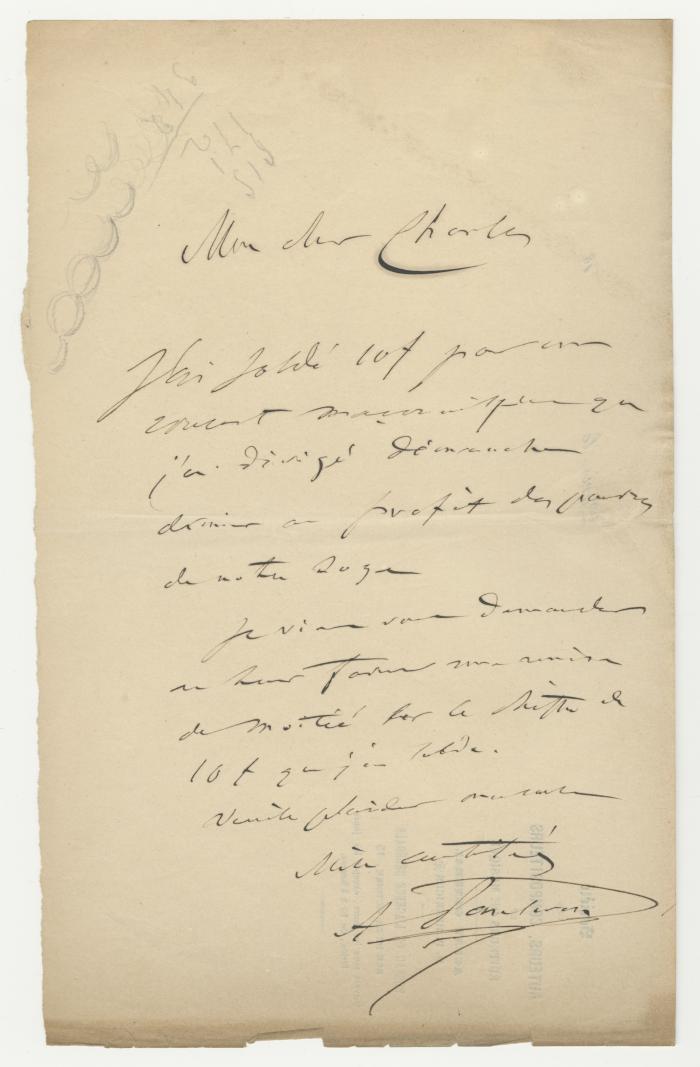 Mon cher Charles
J'ai soldé 10f pour un
concert maçonnique que
j'ai dirigé dimanche
dernier au profit des pauvres
de notre Loge
Je viens vous demander
en leur faveur une remise
de moitié sur le chiffre de
10 f que j'ai soldé.
Veuillez plaider ma cause
Mille amitiés
A